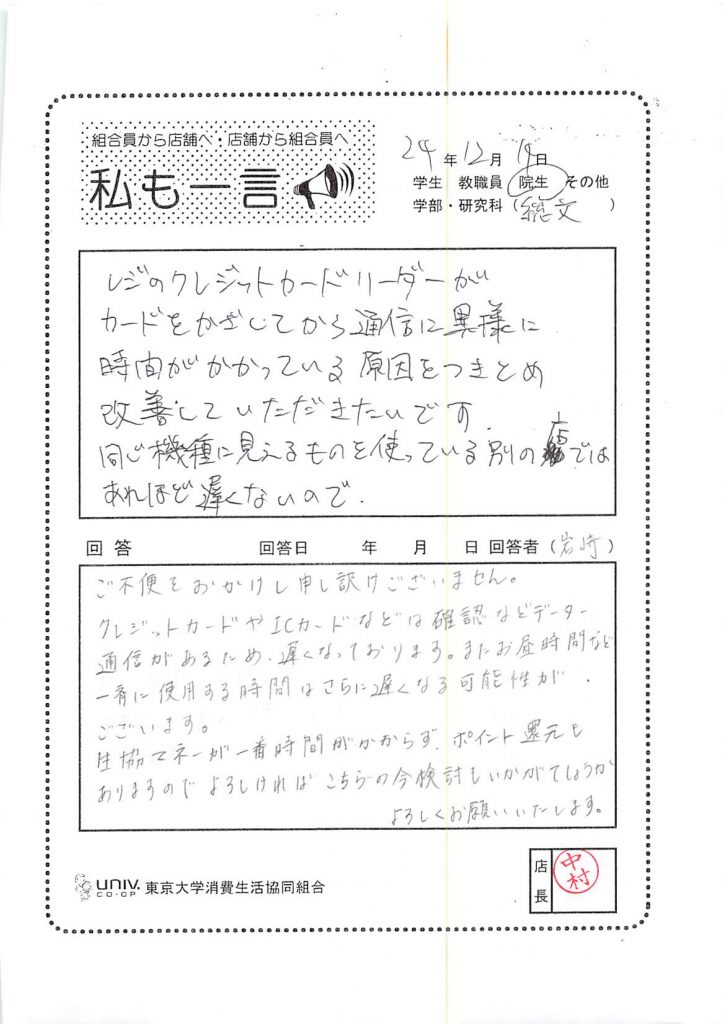 組合員から店舗へ・店舗から組合員へ
私も一言
24年12月19日
学生 教職員 院生 その他
学部・研究科(総文)
レジのクレジットカードリーダーが
カードをかざしてから通信に異様に
時間がかかっている原因をつきとめ
改善していただきたいです.
同じ機種に見えるものを使っている別の店では
あれほど遅くないので.
回答 回答日 年 月 日 回答者(岩崎)
ご不便をおかけし申し訳ございません。
クレジットカードやICカードなどは確認などデーター
通信があるため、遅くなっております。またお昼時間など
一斉に使用する時間はさらに遅くなる可能性が
ございます。
生協マネーが一番時間がかからず、ポイント還元も
ありますのでよろしければこちらの今検討もいかがでしょうか
よろしくお願いいたします。
UNIV. CO-OP 東京大学消費生活協同組合
店長 中村